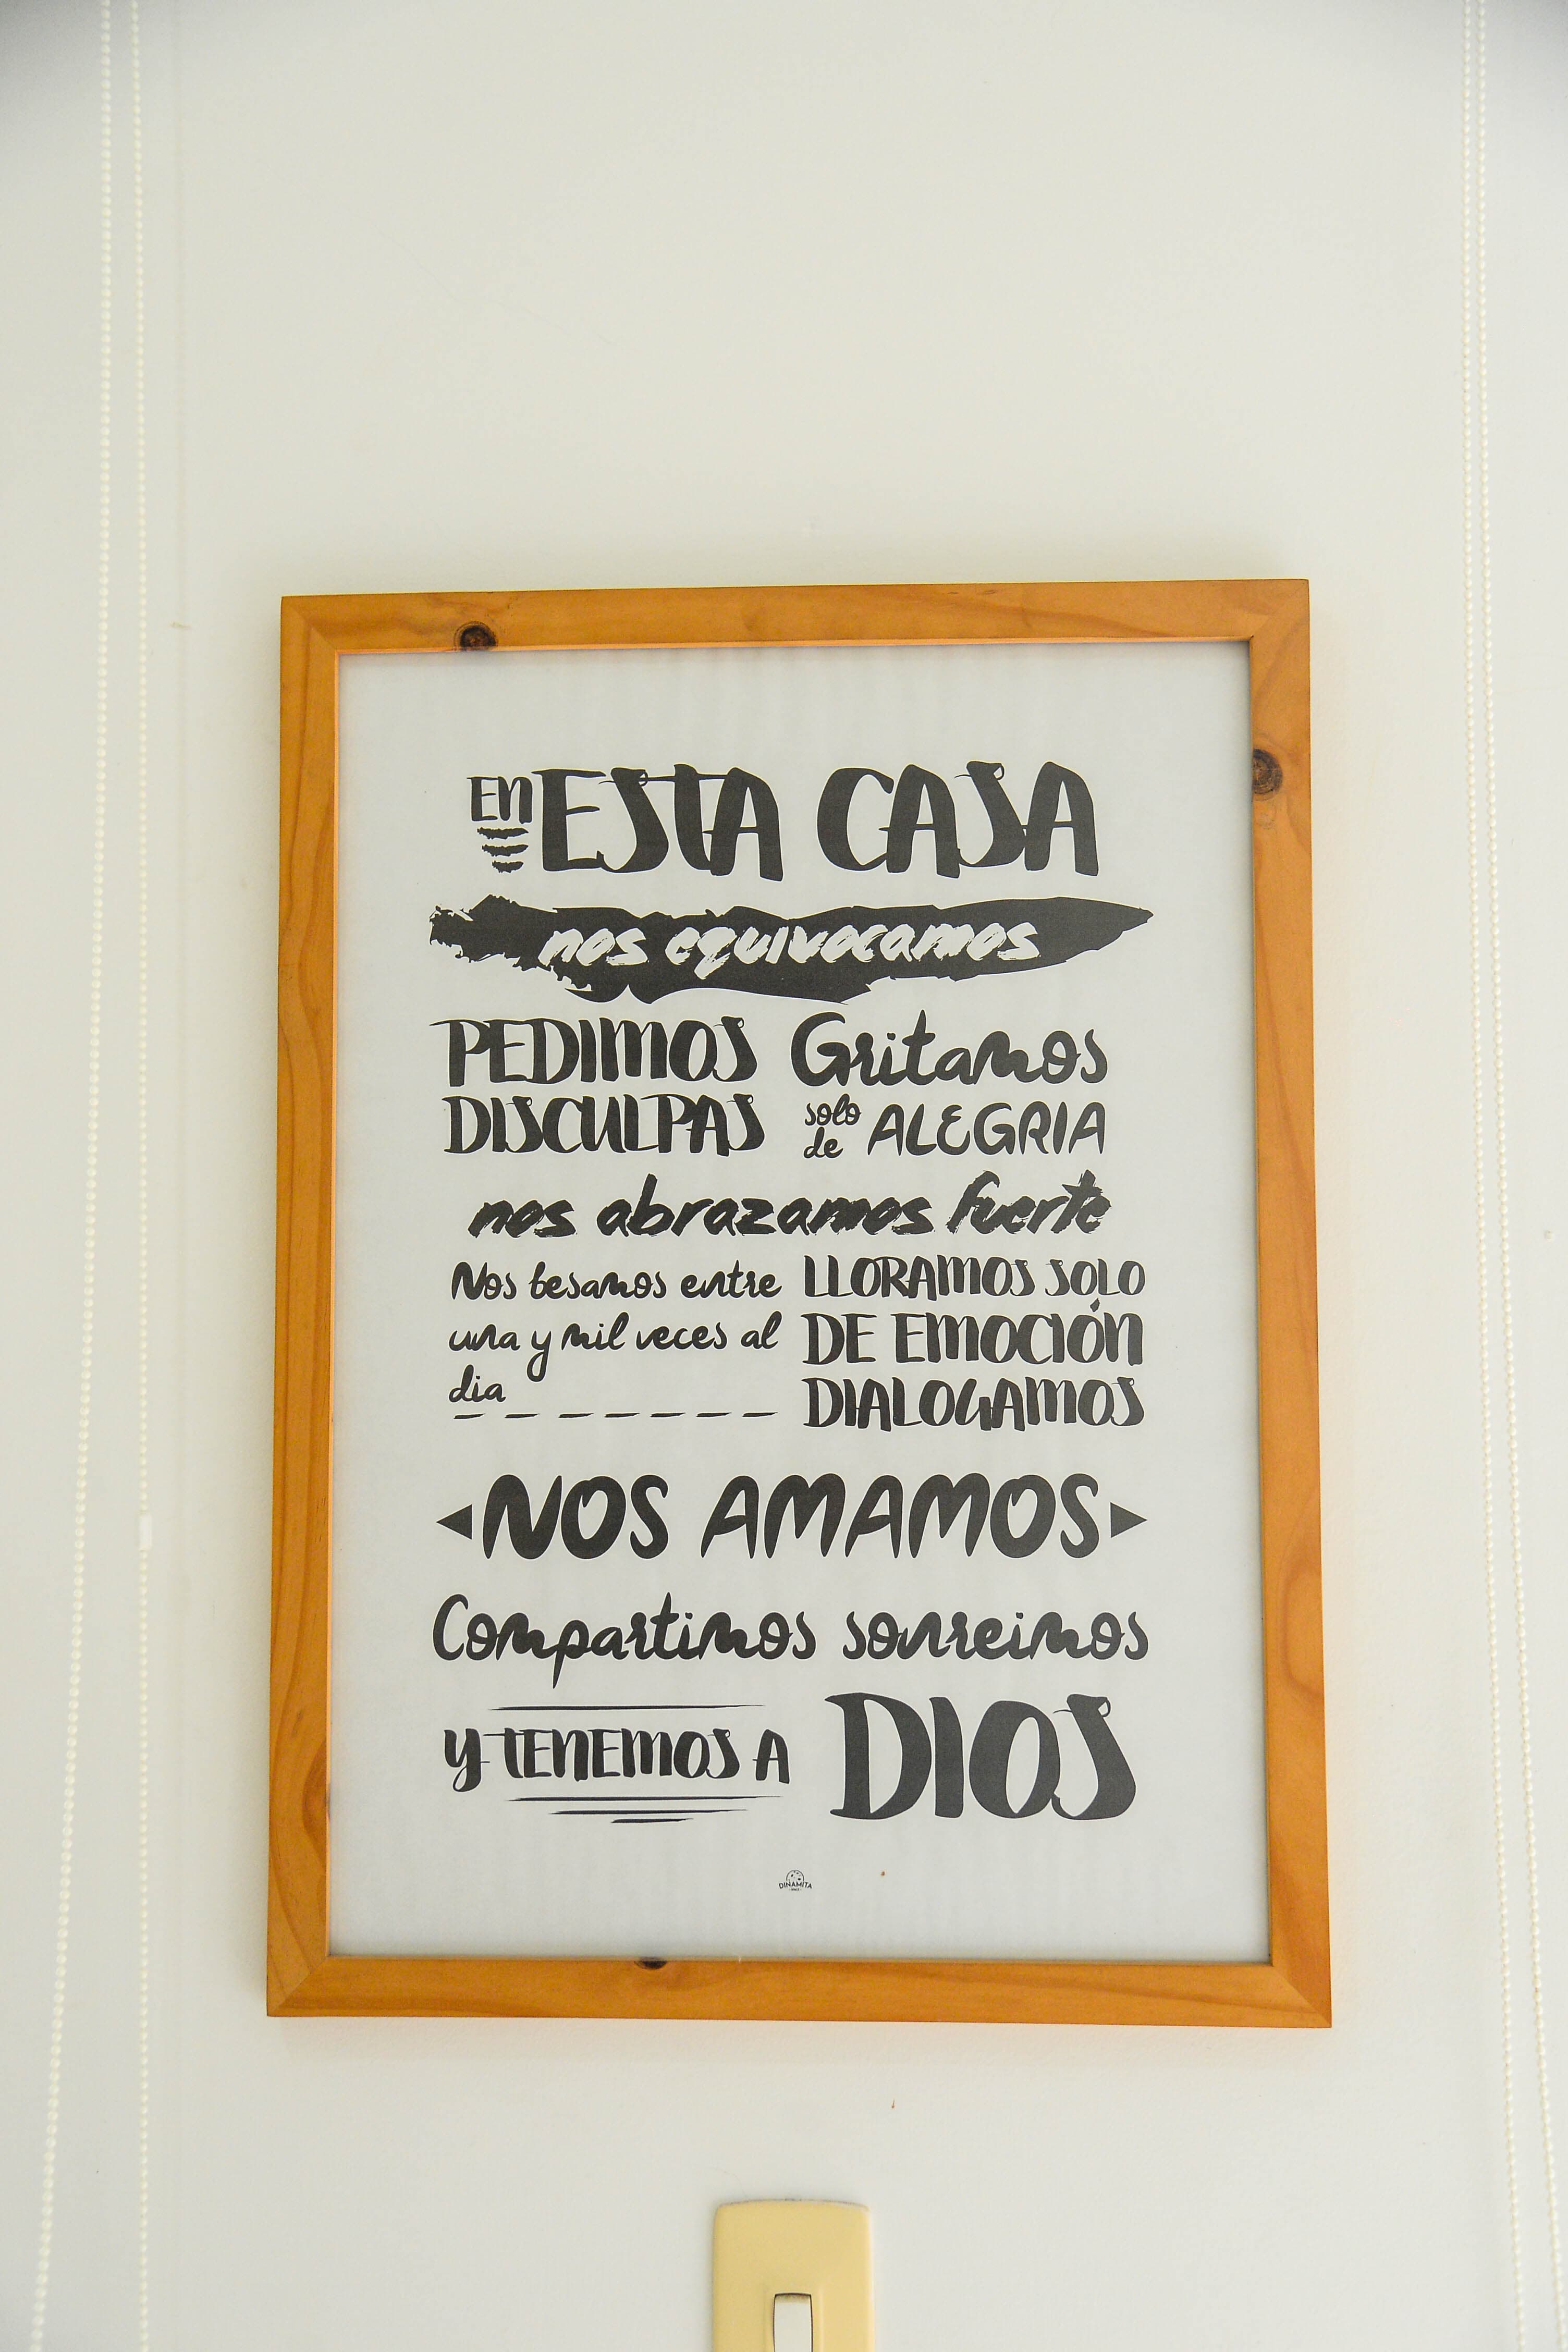 En ESTA CASA
nos equivocamos
PEDIMOS
DISCULPAS
Gritamos
solo
de ALEGRIA
nos abrazamos fuerte
Nos besamos entre
una y mil veces al
dia
LLORAMOS SOLO
DE EMOCIÓN
DIALOGAMOS
NOS AMAMOS
Compartimos sonreimos
y TENEMOS A DIOS
DINAMITA